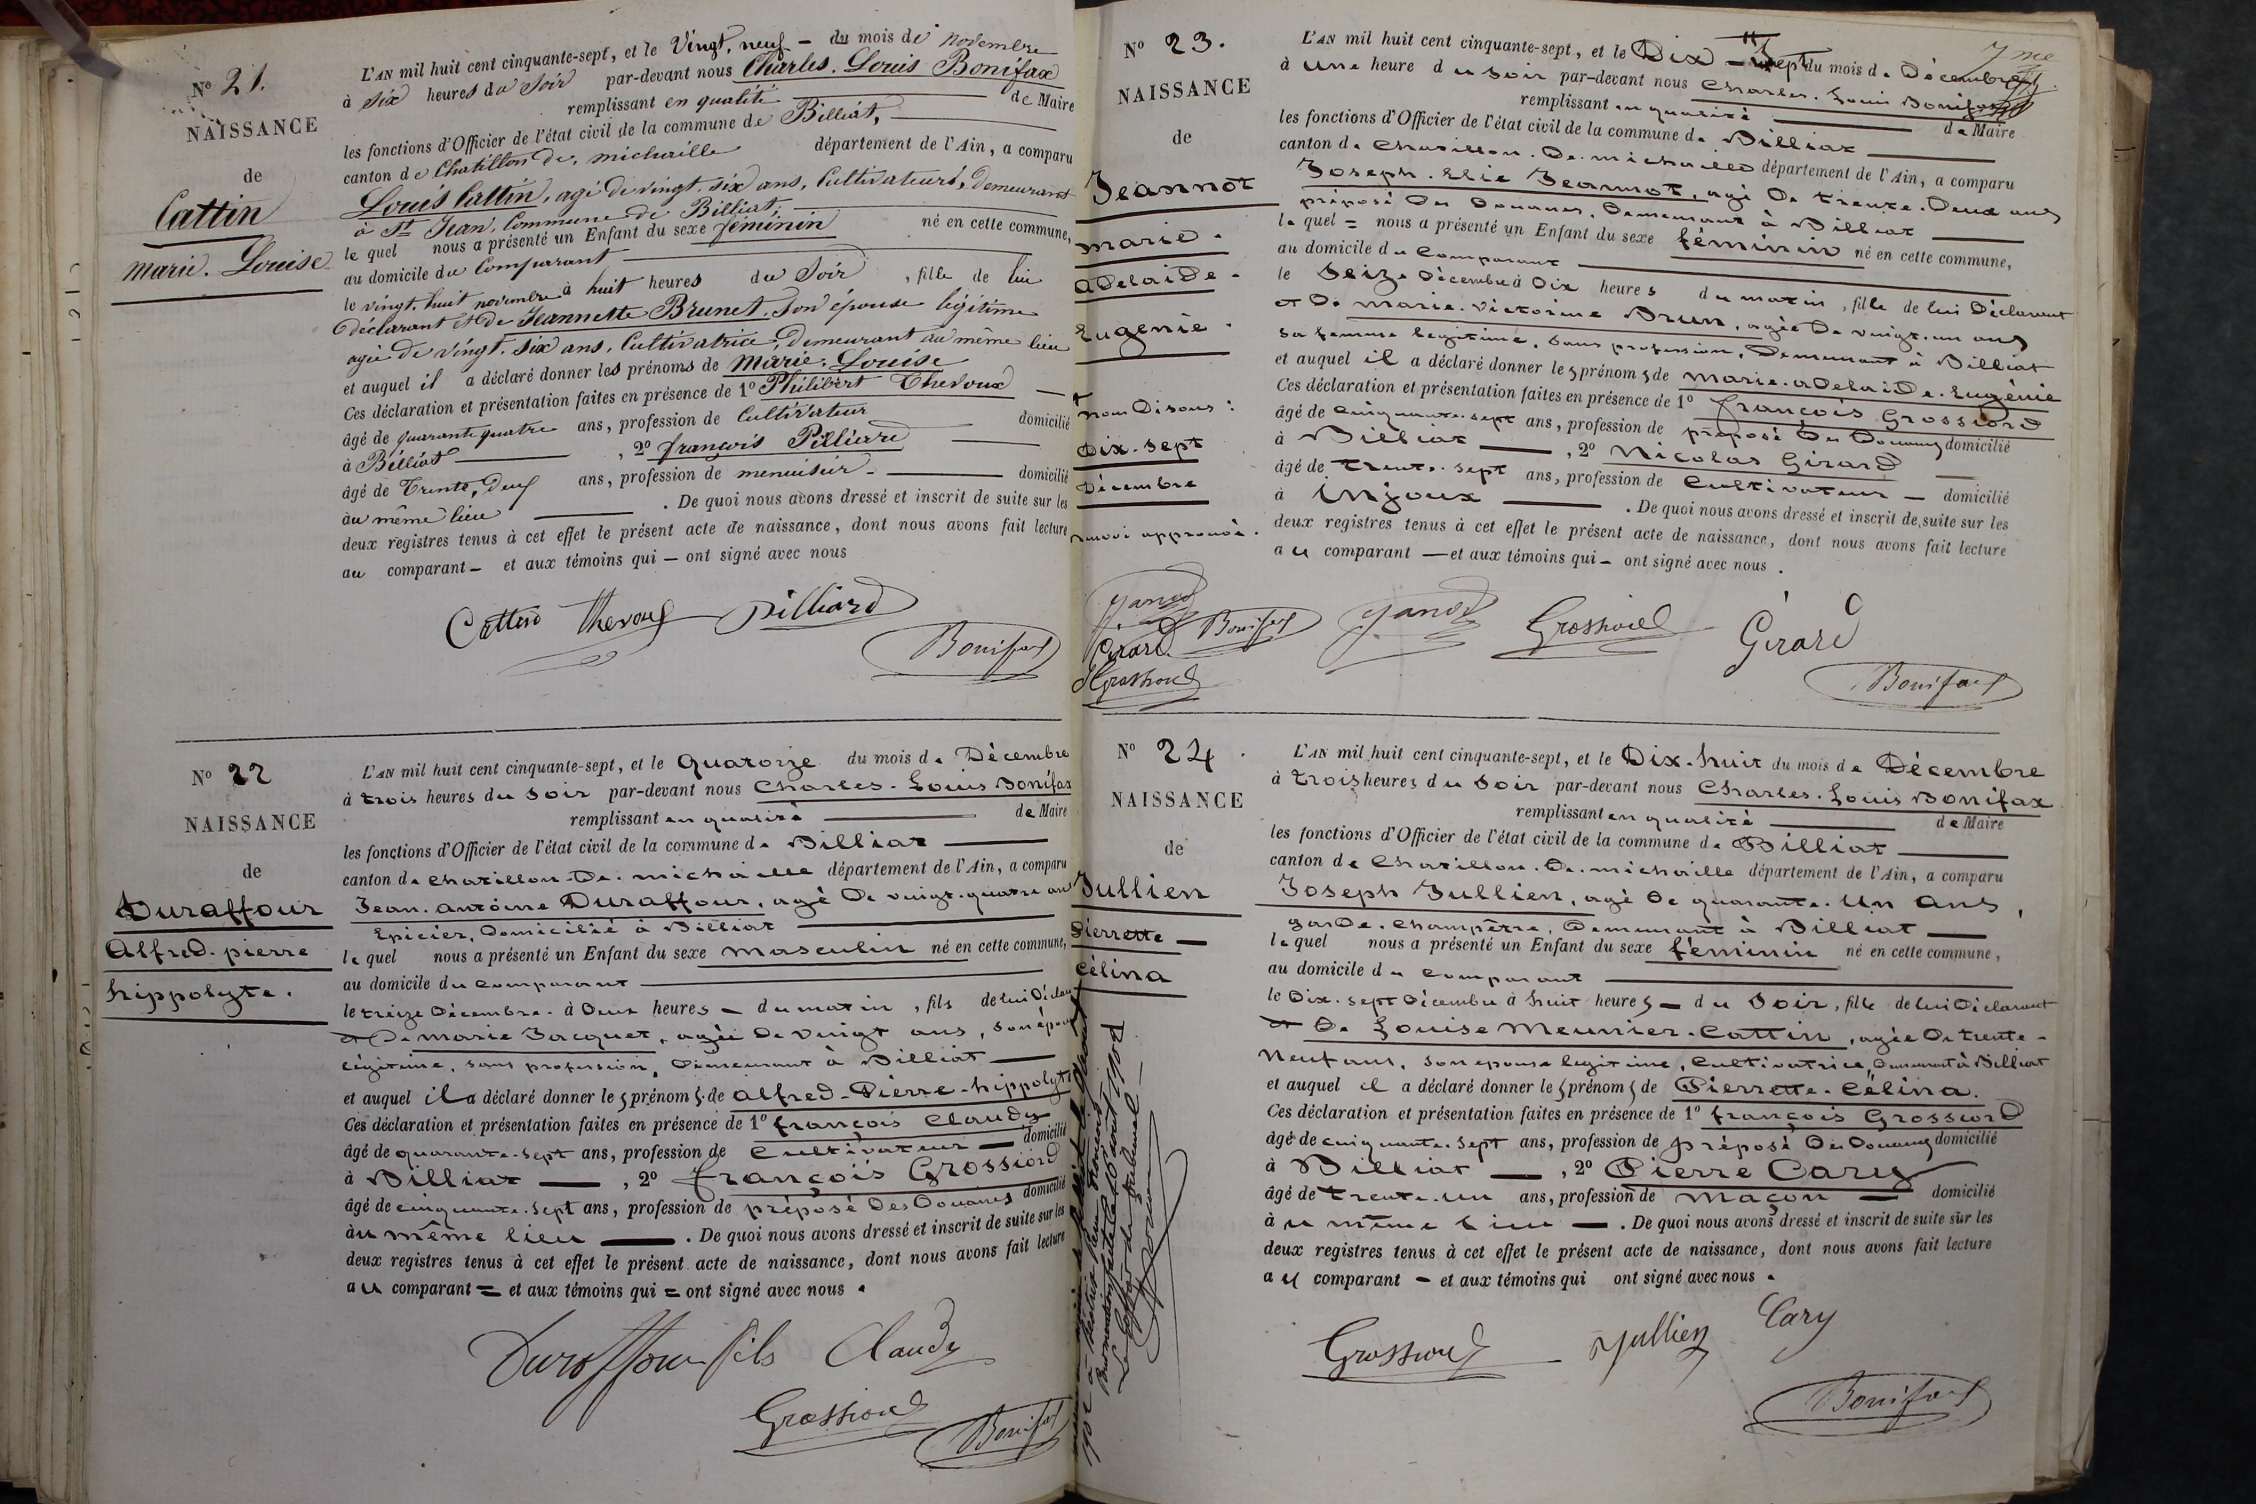 N° 21.
NAISSANCE
de
Cattin
Marie. Louise
L'AN mil huit cent cinquante-sept, et le Vingt, neuf – du mois de novembre
à six heures du Soir par-devant nous Charles. Louis Bonifax
remplissant en qualité de Maire
les fonctions d'Officier de l'état civil de la commune de Billiat,
canton de Chatillon de, michaille département de l'Ain, a comparu
Louis Cattin, agé de vingt. six ans, Cultivateur, Demeurant
à St Jean, Commune de Billiat,
le quel nous a présenté un Enfant du sexe féminin né en cette commune,
au domicile du Comparant
le vingt. huit novembre à huit heures du Soir, fille de lui
déclarant et de Jeannette Brunet, Son épouse légitime
agée de vingt. six ans, Cultivatrice, Demeurant au même lieu
et auquel il a déclaré donner les prénoms de Marie. Louise
Ces déclaration et présentation faites en présence de 1° Philibert Thevoux
âgé de quarante quatre ans, profession de Cultivateur domicilié
à Billiat, 2° françois Pilliard
âgé de Trente, deux ans, profession de menuisier – domicilié
au même lieu. De quoi nous avons dressé et inscrit de suite sur les
deux registres tenus à cet effet le présent acte de naissance, dont nous avons fait lecture
au comparant – et aux témoins qui – ont signé avec nous
Cattin Thevoux Pilliard
Bonifax
N° 22
NAISSANCE
de
Duraffour
Alfred. pierre
hippolyte.
L'AN mil huit cent cinquante-sept, et le Quatorze du mois de Décembre
à trois heures du Soir par-devant nous Charles. Louis Bonifax
remplissant en qualité de Maire
les fonctions d'Officier de l'état civil de la commune de Billiat
canton de Chatillon. De. michaille département de l'Ain, a comparu
Jean. antoine Duraffour, agé De vingt. quatre ans
Epicier, Domicilié à Billiat
le quel nous a présenté un Enfant du sexe masculin né en cette commune,
au domicile du Comparant
le treize Décembre. à Deux heures – du matin, fils de lui Déclarant
et De Marie Jacquet, agée De vingt ans, son épouse
légitime, sans profession, Demeurant à Billiat
et auquel il a déclaré donner les prénoms de Alfred – Pierre – hippolyte
Ces déclaration et présentation faites en présence de 1° françois Claudy
âgé de quarante. sept ans, profession de Cultivateur – domicilié
à Billiat, 2° françois Grossiord
âgé de cinquante. sept ans, profession de préposé Des Douanes domicilié
au même lieu. De quoi nous avons dressé et inscrit de suite sur les
deux registres tenus à cet effet le présent acte de naissance, dont nous avons fait lecture
au comparant = et aux témoins qui = ont signé avec nous.
Duraffour fils Claudy
Grossiord
Bonifax
N° 23.
NAISSANCE
de
Jeannot
marie.
adelaïde.
Eugénie.
nous Disons:
Dix. sept
Décembre
renvoi approuvé.
Janod
Girard Bonifax
Grossiord
L'AN mil huit cent cinquante-sept, et le Dix – Sept du mois de Décembre
à une heure du soir par-devant nous Charles. Louis Bonifax
remplissant en qualité de Maire
les fonctions d'Officier de l'état civil de la commune de Billiat
canton de Chatillon. De. michaille département de l'Ain, a comparu
Joseph. Elie Jeannot, agé De trente. Deux ans
préposé Des Douanes, Demeurant à Billiat
le quel = nous a présenté un Enfant du sexe féminin né en cette commune,
au domicile du Comparant
le Seize Décembre à Dix heures du matin, fille de lui Déclarant
et De Marie. Victorine Brun, agée De vingt. un ans
sa femme legitime, sans profession, Demeurant à Billiat
et auquel il a déclaré donner les prénoms de Marie. aDelaiDe. Eugénie
Ces déclaration et présentation faites en présence de 1° françois Grossiord
âgé de cinquante. sept ans, profession de préposé Des Douanes domicilié
à Billiat, 2° Nicolas Girard
âgé de trente. sept ans, profession de Cultivateur – domicilié
à injoux. De quoi nous avons dressé et inscrit de suite sur les
deux registres tenus à cet effet le présent acte de naissance, dont nous avons fait lecture
au comparant – et aux témoins qui – ont signé avec nous.
Janod Grossiord Girard
Bonifax
N° 24.
NAISSANCE
de
Jullien
Pierrette
Célina
L'AN mil huit cent cinquante-sept, et le Dix. huit du mois de Décembre
à trois heures du Soir par-devant nous Charles. Louis Bonifax
remplissant en qualité de Maire
les fonctions d'Officier de l'état civil de la commune de Billiat
canton de Chatillon. De. michaille département de l'Ain, a comparu
Joseph Jullien, agé De quarante. un ans,
garde. Champêtre, Demeurant à Billiat
le quel nous a présenté un Enfant du sexe féminin né en cette commune,
au domicile du Comparant
le Dix. sept Décembre à huit heures – du Soir, fille de lui Déclarant
et De Louise Meunier. Cattin, agée De trente –
Neuf ans, son epouse legitime, Cultivatrice, Demeurant à Billiat
et auquel il a déclaré donner les prénoms de Pierrette. Célina.
Ces déclaration et présentation faites en présence de 1° françois Grossiord
âgé de cinquante. sept ans, profession de préposé Des Douanes domicilié
à Billiat, 2° Pierre Cary
âgé de trente. un ans, profession de maçon – domicilié
au même lieu. De quoi nous avons dressé et inscrit de suite sur les
deux registres tenus à cet effet le présent acte de naissance, dont nous avons fait lecture
au comparant – et aux témoins qui ont signé avec nous.
Grossiord Jullien Cary
Bonifax